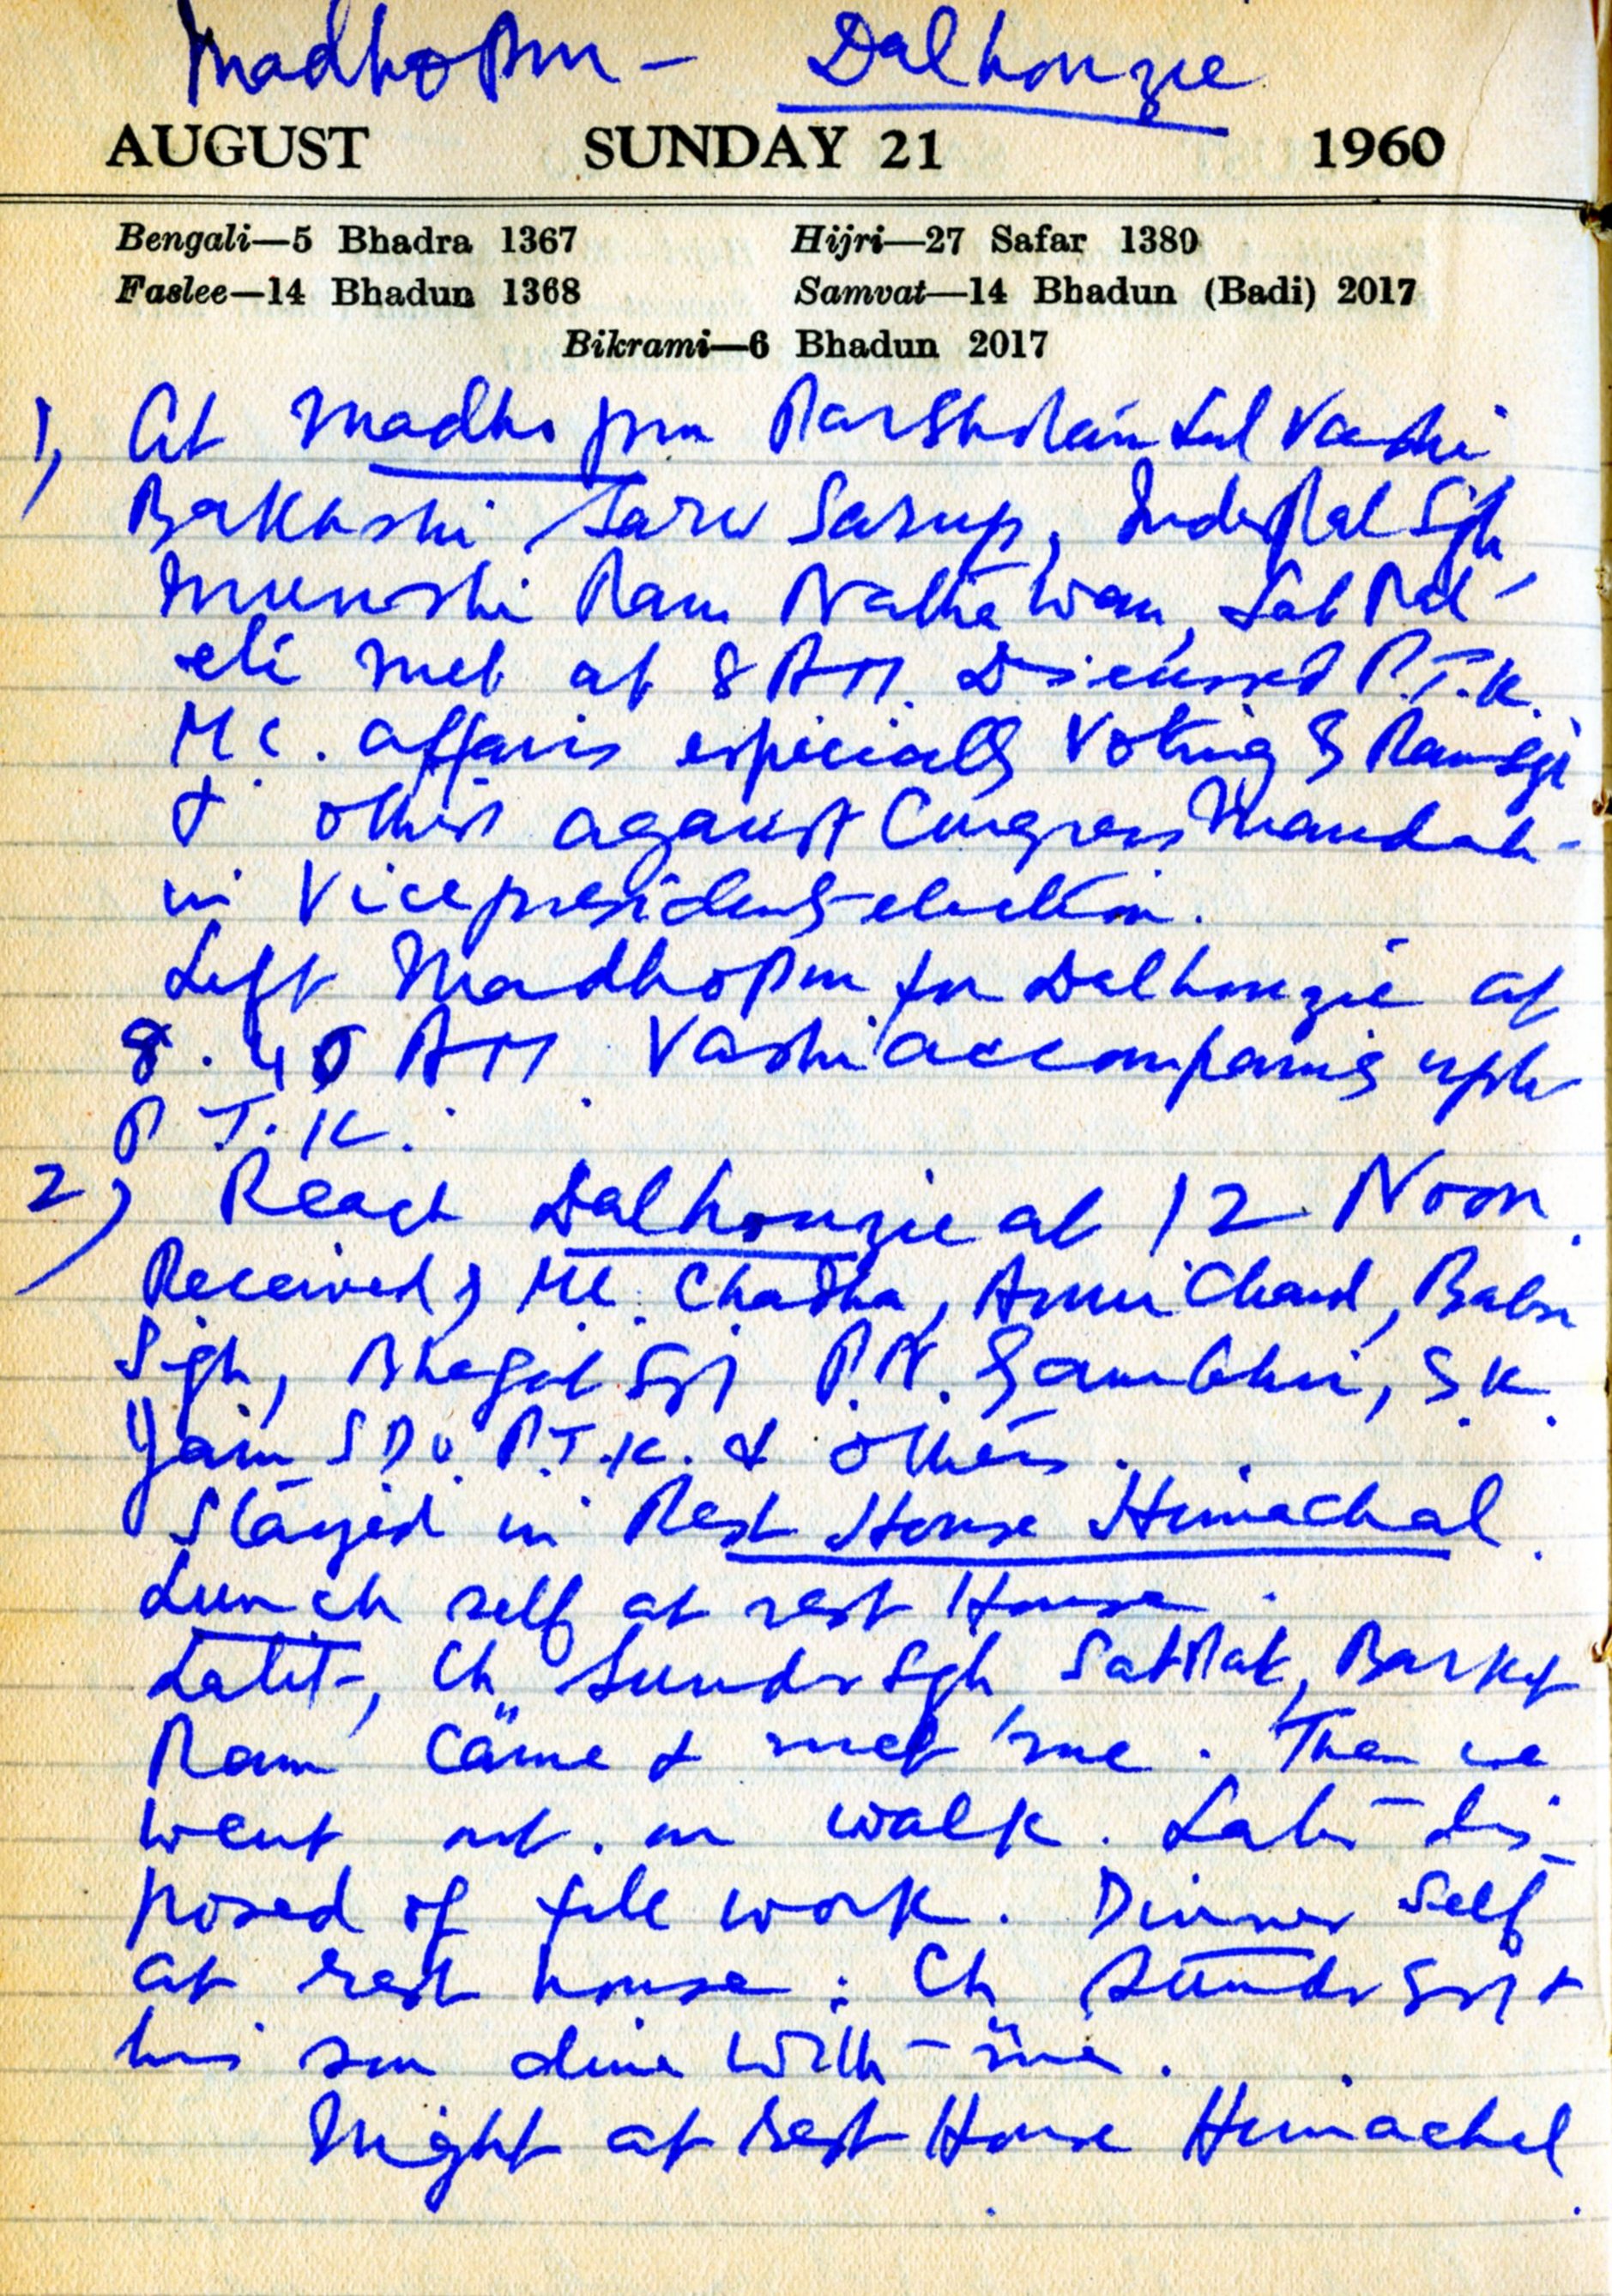 Madhopur - Dalhouzie
AUGUST SUNDAY 21 1960
Bengali—5 Bhadra 1367 Hijri—27 Safar 1380
Faslee—14 Bhadun 1368 Samvat—14 Bhadun (Badi) 2017
Bikrami—6 Bhadun 2017
1) At Madhopur Lal Vashi
Bakhshi Sarup, Inderpal Sgh
Munshi Ram Sat Pal
etc met at 8 AM. Discussed P.T.K.
M C. affairs especially voting by Ram Sgh
& others against Congress Mandate
in Vicepresidents election.
Left Madhopur for Dalhouzie at
8.40 AM. Vashi accompanies upto
P.T.K.
2) Reach Dalhouzie at 12 Noon.
Received by Chadha, Amir Chand, Babu
Sigh, Bhagat Sgh P.N. Gambhir, S.K.
Jain SDO. P.T.K. & others.
Stayed in Rest House Himachal.
Lunch self at rest House.
Lalit, Ch. Sundr Sgh, Sat Pal,
Ram came & met me. Then we
went out on walk. Later dis-
posed of file work. Dinner self
at rest house: Ch Sundr Sgh &
his son dine with me.
Night at rest House Himachel.